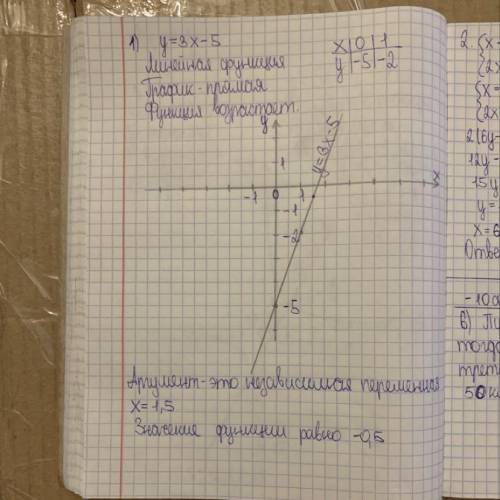 1) y=3x-5
x | 0 | 1
y | -5 | -2
Линейная функция
График - прямая
Функция возрастает.
y
y=3x-5
1
x
-1 0 1
-1
-2
-5
Аргумент - это независимая переменная
x=1,5
Значение функции равно -0,5
2. {x-
{2x
{x=
{2x
2(6y-
12y-
15y
y=
x=6
Отве
-10a
в) Пу
тогда
трет
50 к